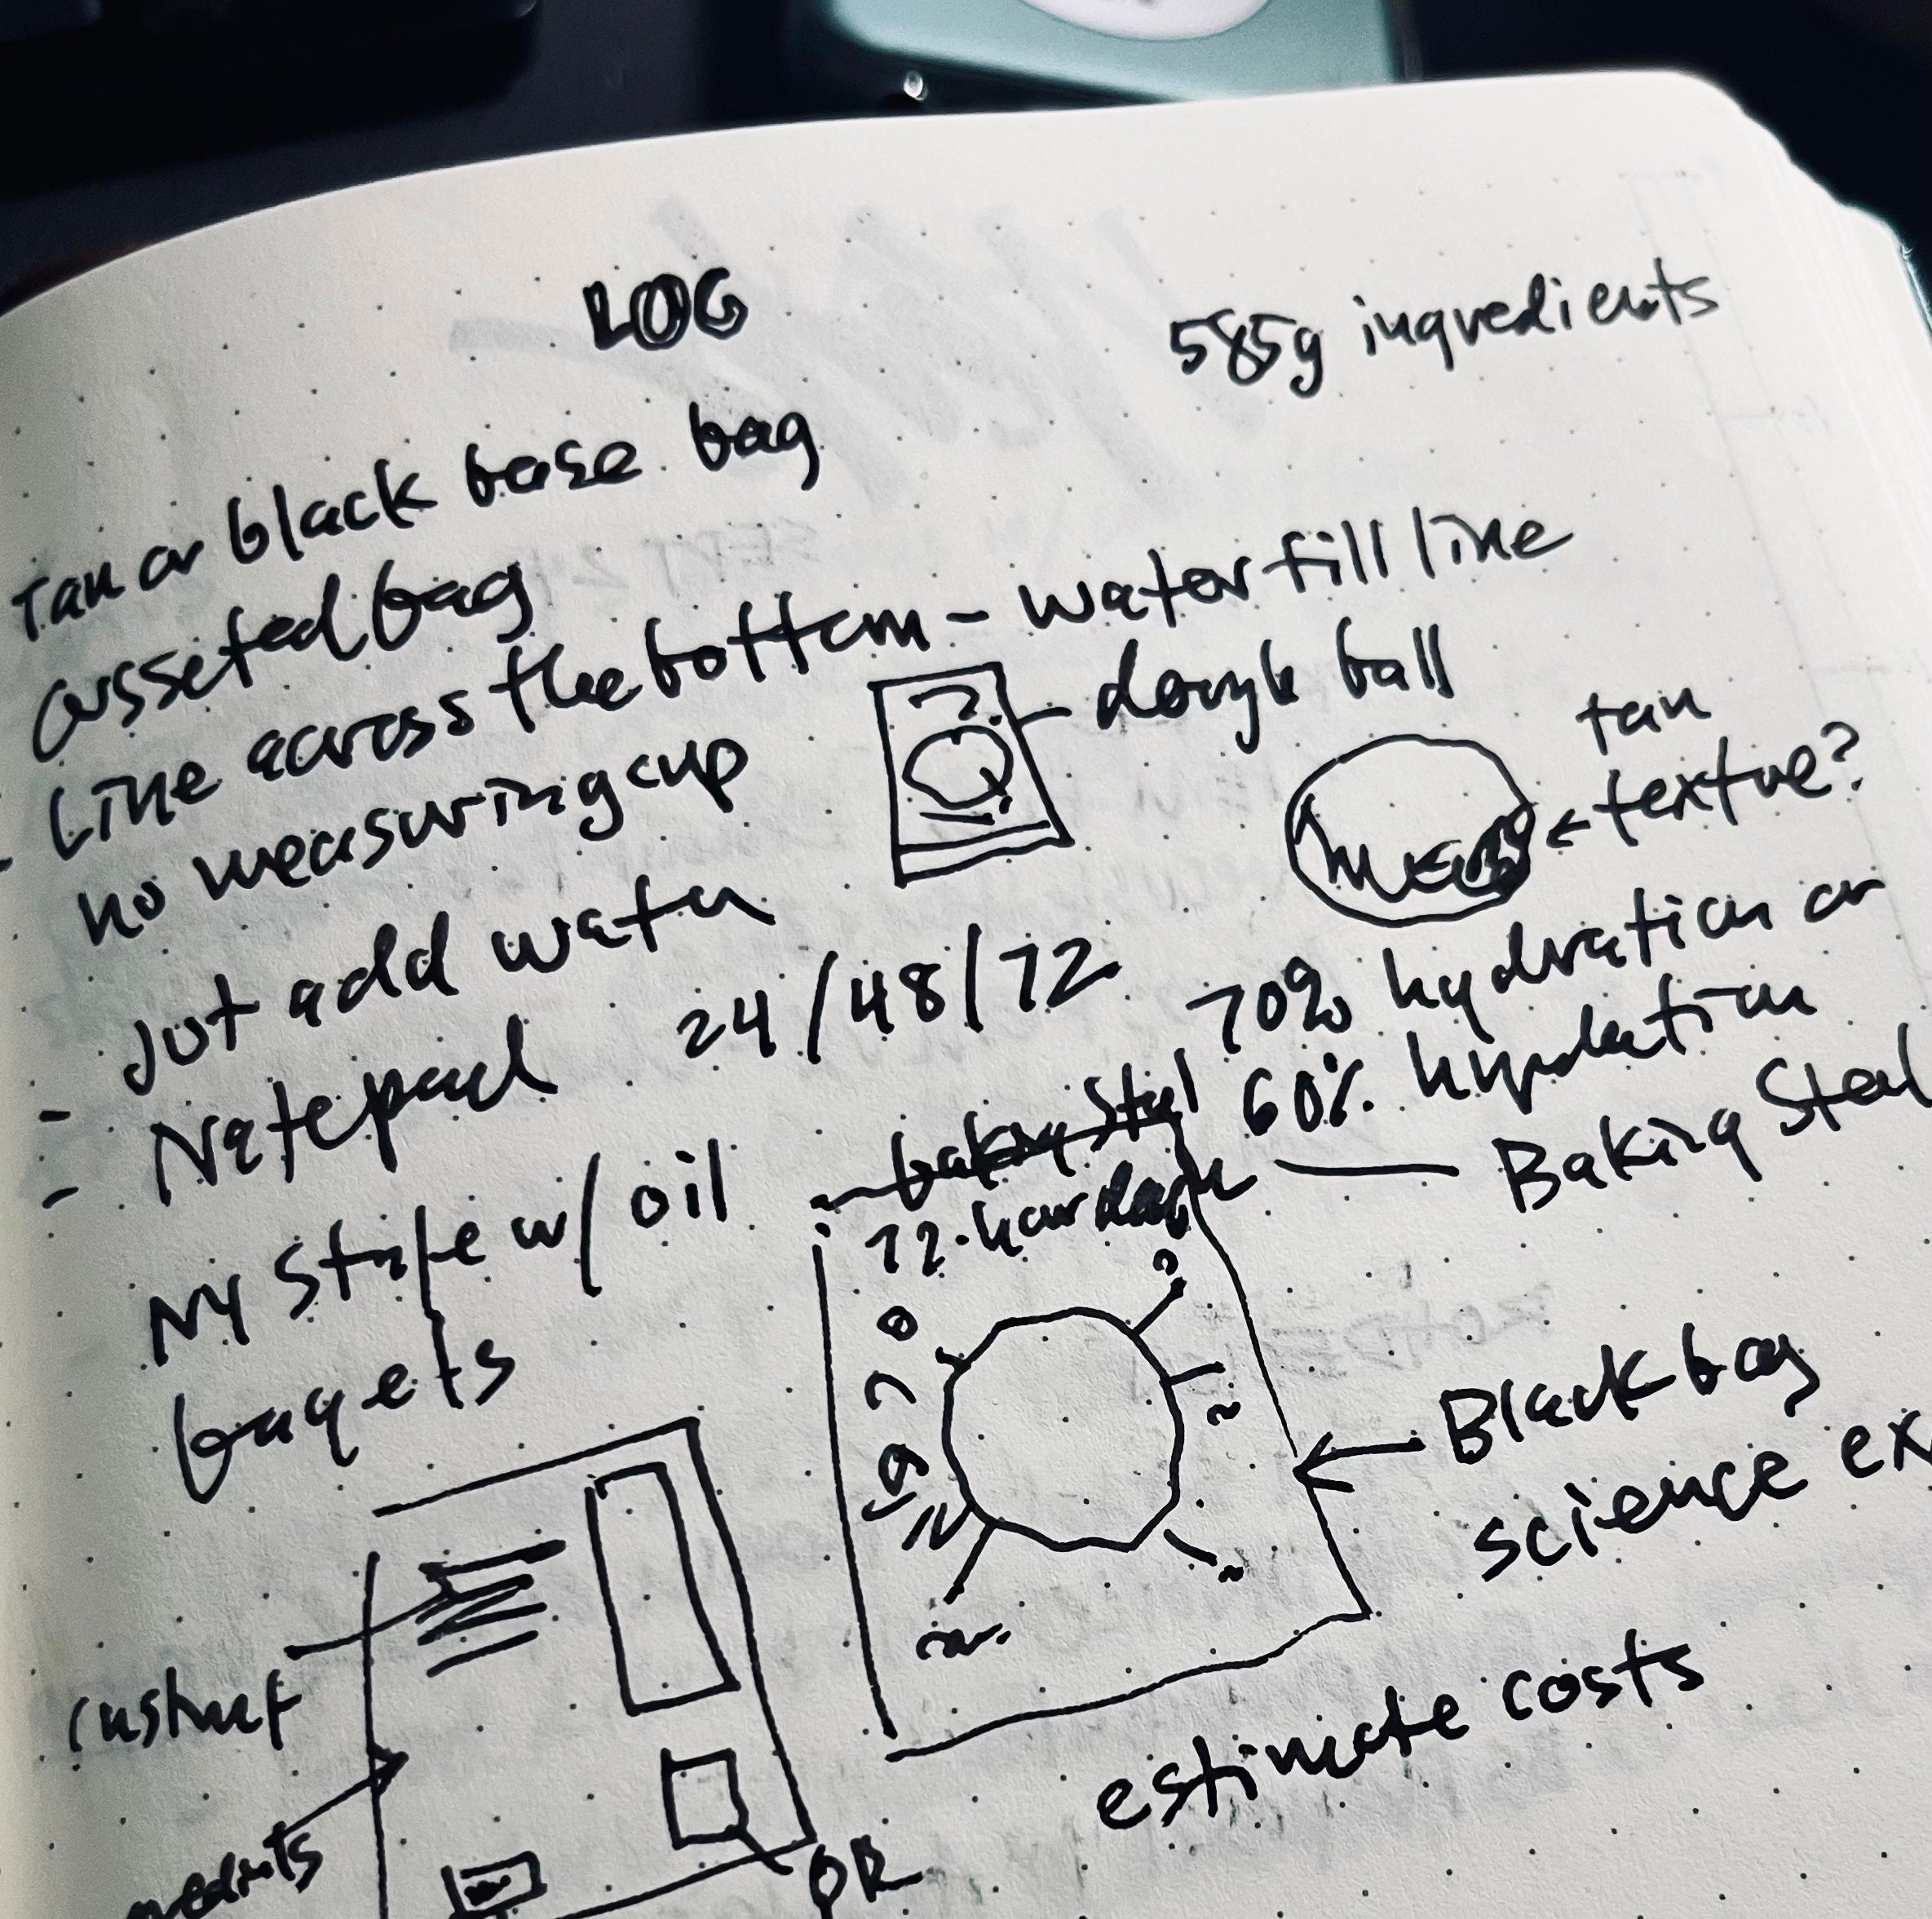 LOG
585g ingredients
Tan or black base bag
Gusseted bag
- Line across the bottom - water fill line
no measuring cup
dough ball
tan
texture?
- Just add water
- Notepad 24/48/72
70% hydration or
60% hydration
baking Steel
72-hour dough — Baking Steel
NY Style w/ oil
bagels
Black bag
science ex
instruct
estimate costs
QR